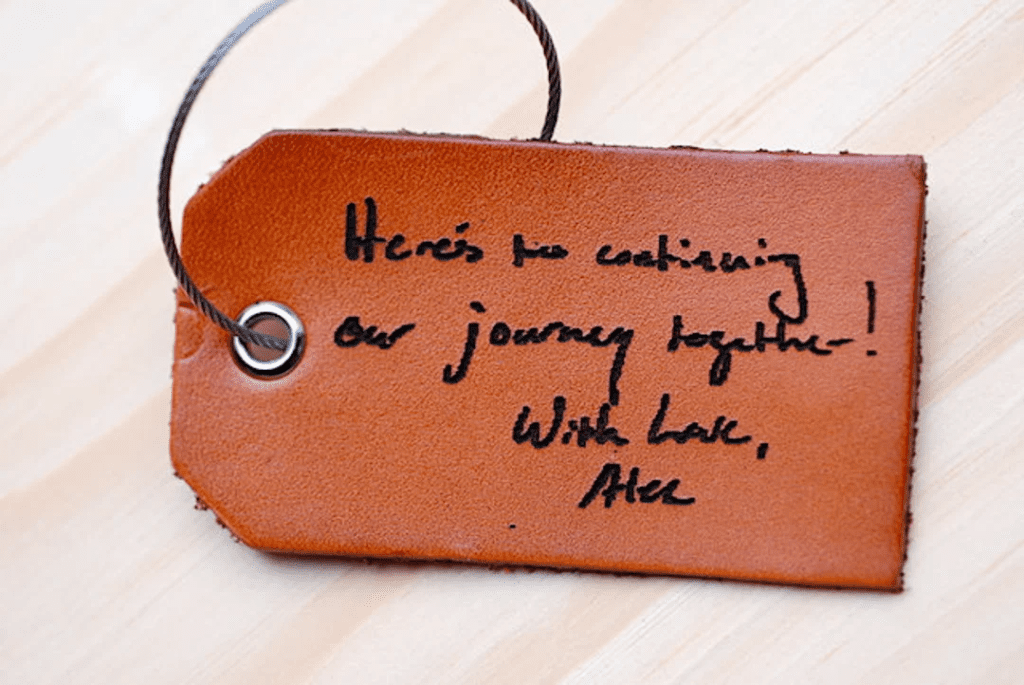 Here's to continuing
our journey together!
With Love,
Alex